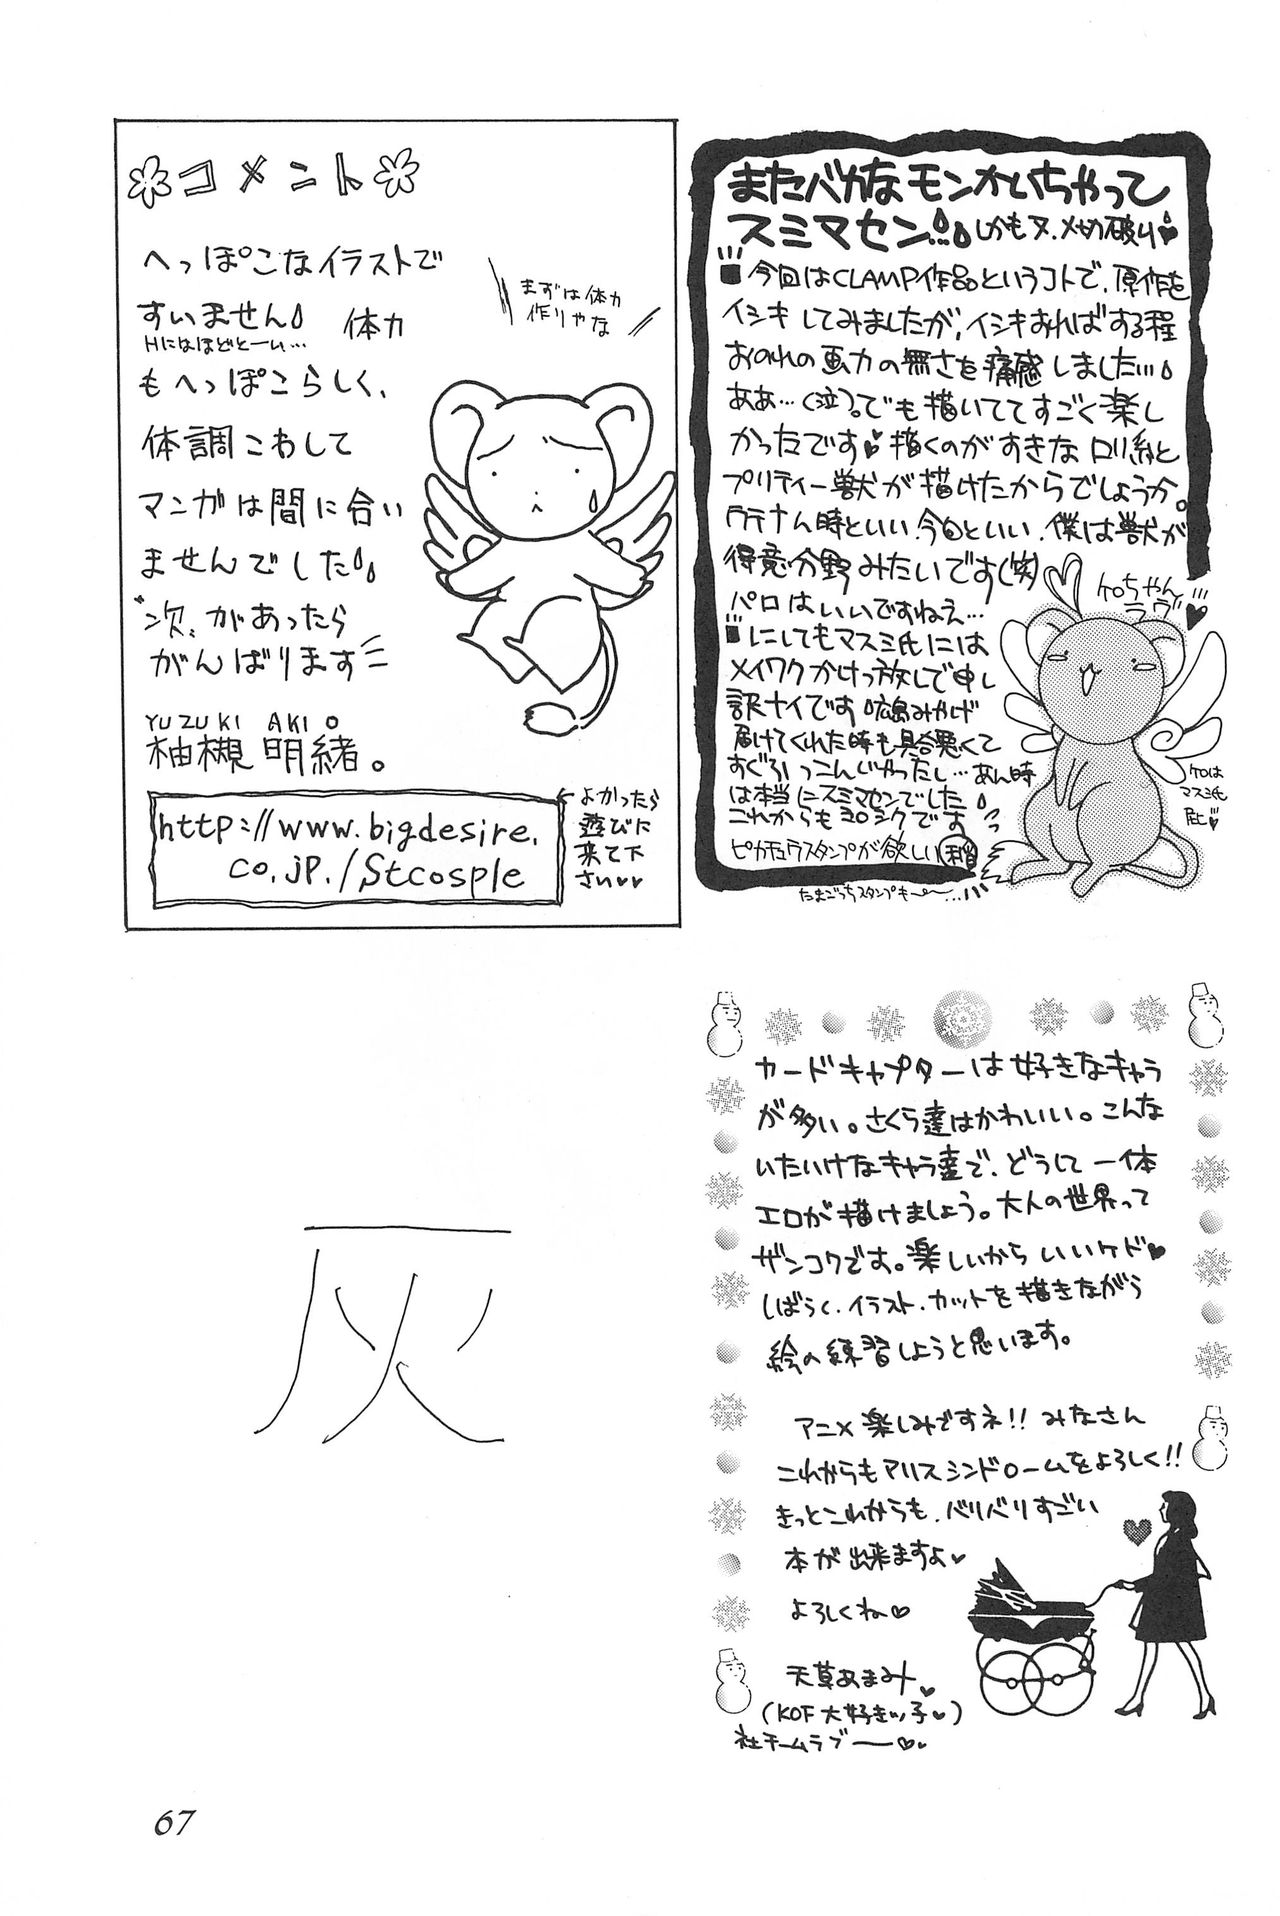 コメント
へっぽこなイラストで
すいません 体力
Hにはほどとーい…
もへっぽこらしく、
体調こわして
マンガは間に合い
ませんでした
次、があったら
がんばります
まずは体力
作りやな
YUZUKI AKI
柚槻 明緒。
http://www.bigdesire.
co.jp./Stcosple
よかったら
遊びに
来て下
さい
またバカなモンかいちゃって
スミマセン しかもヌ、〆切破り
今回はCLAMP作品というコトで、原作を
イシキしてみましたが、イシキすればする程
おのれの画力の無さを痛感しました…
ああ…(泣)。でも描いててすごく楽し
かったです 描くのがすきなロリ系と
プリティー獣が描けたからでしょうか。
ウテナん時といい、今回といい、僕は獣が
得意分野みたいです(笑)
パロはいいですねえ…
にしてもマスミ氏には
メイワクかけっ放しで申し
訳ナイです 広島みやげ
届けてくれた時も具合悪くて
すぐ引っこんじゃったし…あん時
は本当にスミマセンでした
これからもヨロシクです
ピカチュウスタンプが欲しい
たまごっちスタンプも〜〜…
ケロちゃん
ラヴ
ケロは
マスミ氏
カードキャプターは好きなキャラ
が多い。さくら達はかわいい。こんな
いたいけなキャラ達で、どうして一体
エロが描けましょう。大人の世界って
ザンコクです。楽しいからいいケド
しばらく、イラスト、カットを描きながら
絵の練習しようと思います。
アニメ楽しみですネ!! みなさん
これからもアリスシンドロームをよろしく!!
きっとこれからも、バリバリすごい
本が出来ますよ
よろしくね
天草あまみ
(KOF大好きッ子)
社チームラブ
灰
67